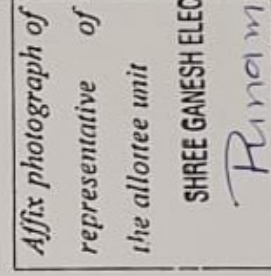 Affix photograph of
representative of
the allottee unit
SHREE GANESH ELEC
Punam